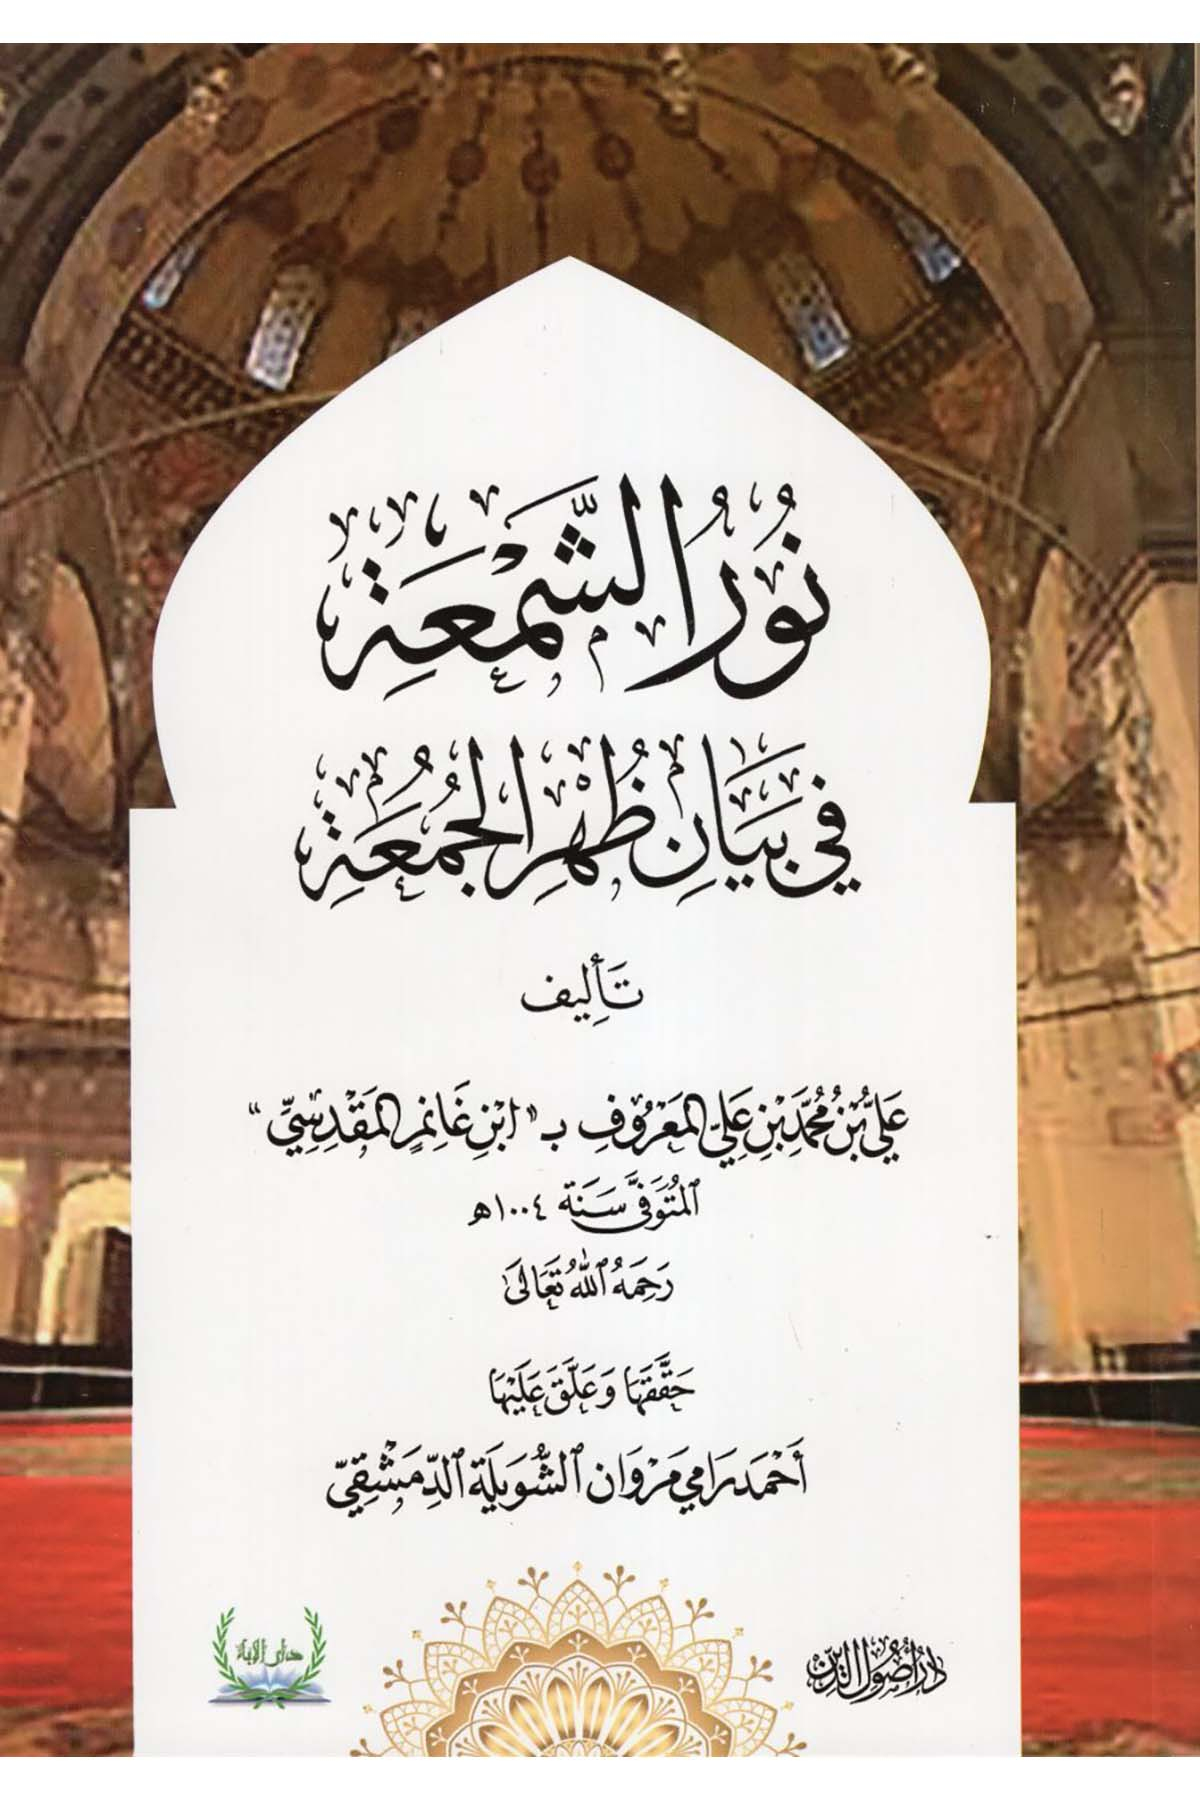 نُورُ الشَّمْعَةِ
فِي بَيَانِ ظُهْرِ الْجُمُعَةِ
تَأليف
عَلِيُّ بْنُ مُحَمَّدِ بْنِ عَلِيٍّ المَعْرُوفِ بـ "ابْنِ غَانِمٍ المَقْدِسِيِّ"
المُتَوَفَّى سَنَة ١٠٠٤هـ
رَحِمَهُ اللهُ تَعَالَى
حَقَّقَهَا وَعَلَّقَ عَلَيْهَا
أَحْمَد رَامِي مَرْوَان الشُّوَيلَة الدِّمَشْقِيّ
دَارُ أُصُولِ الدِّين
دار الآية